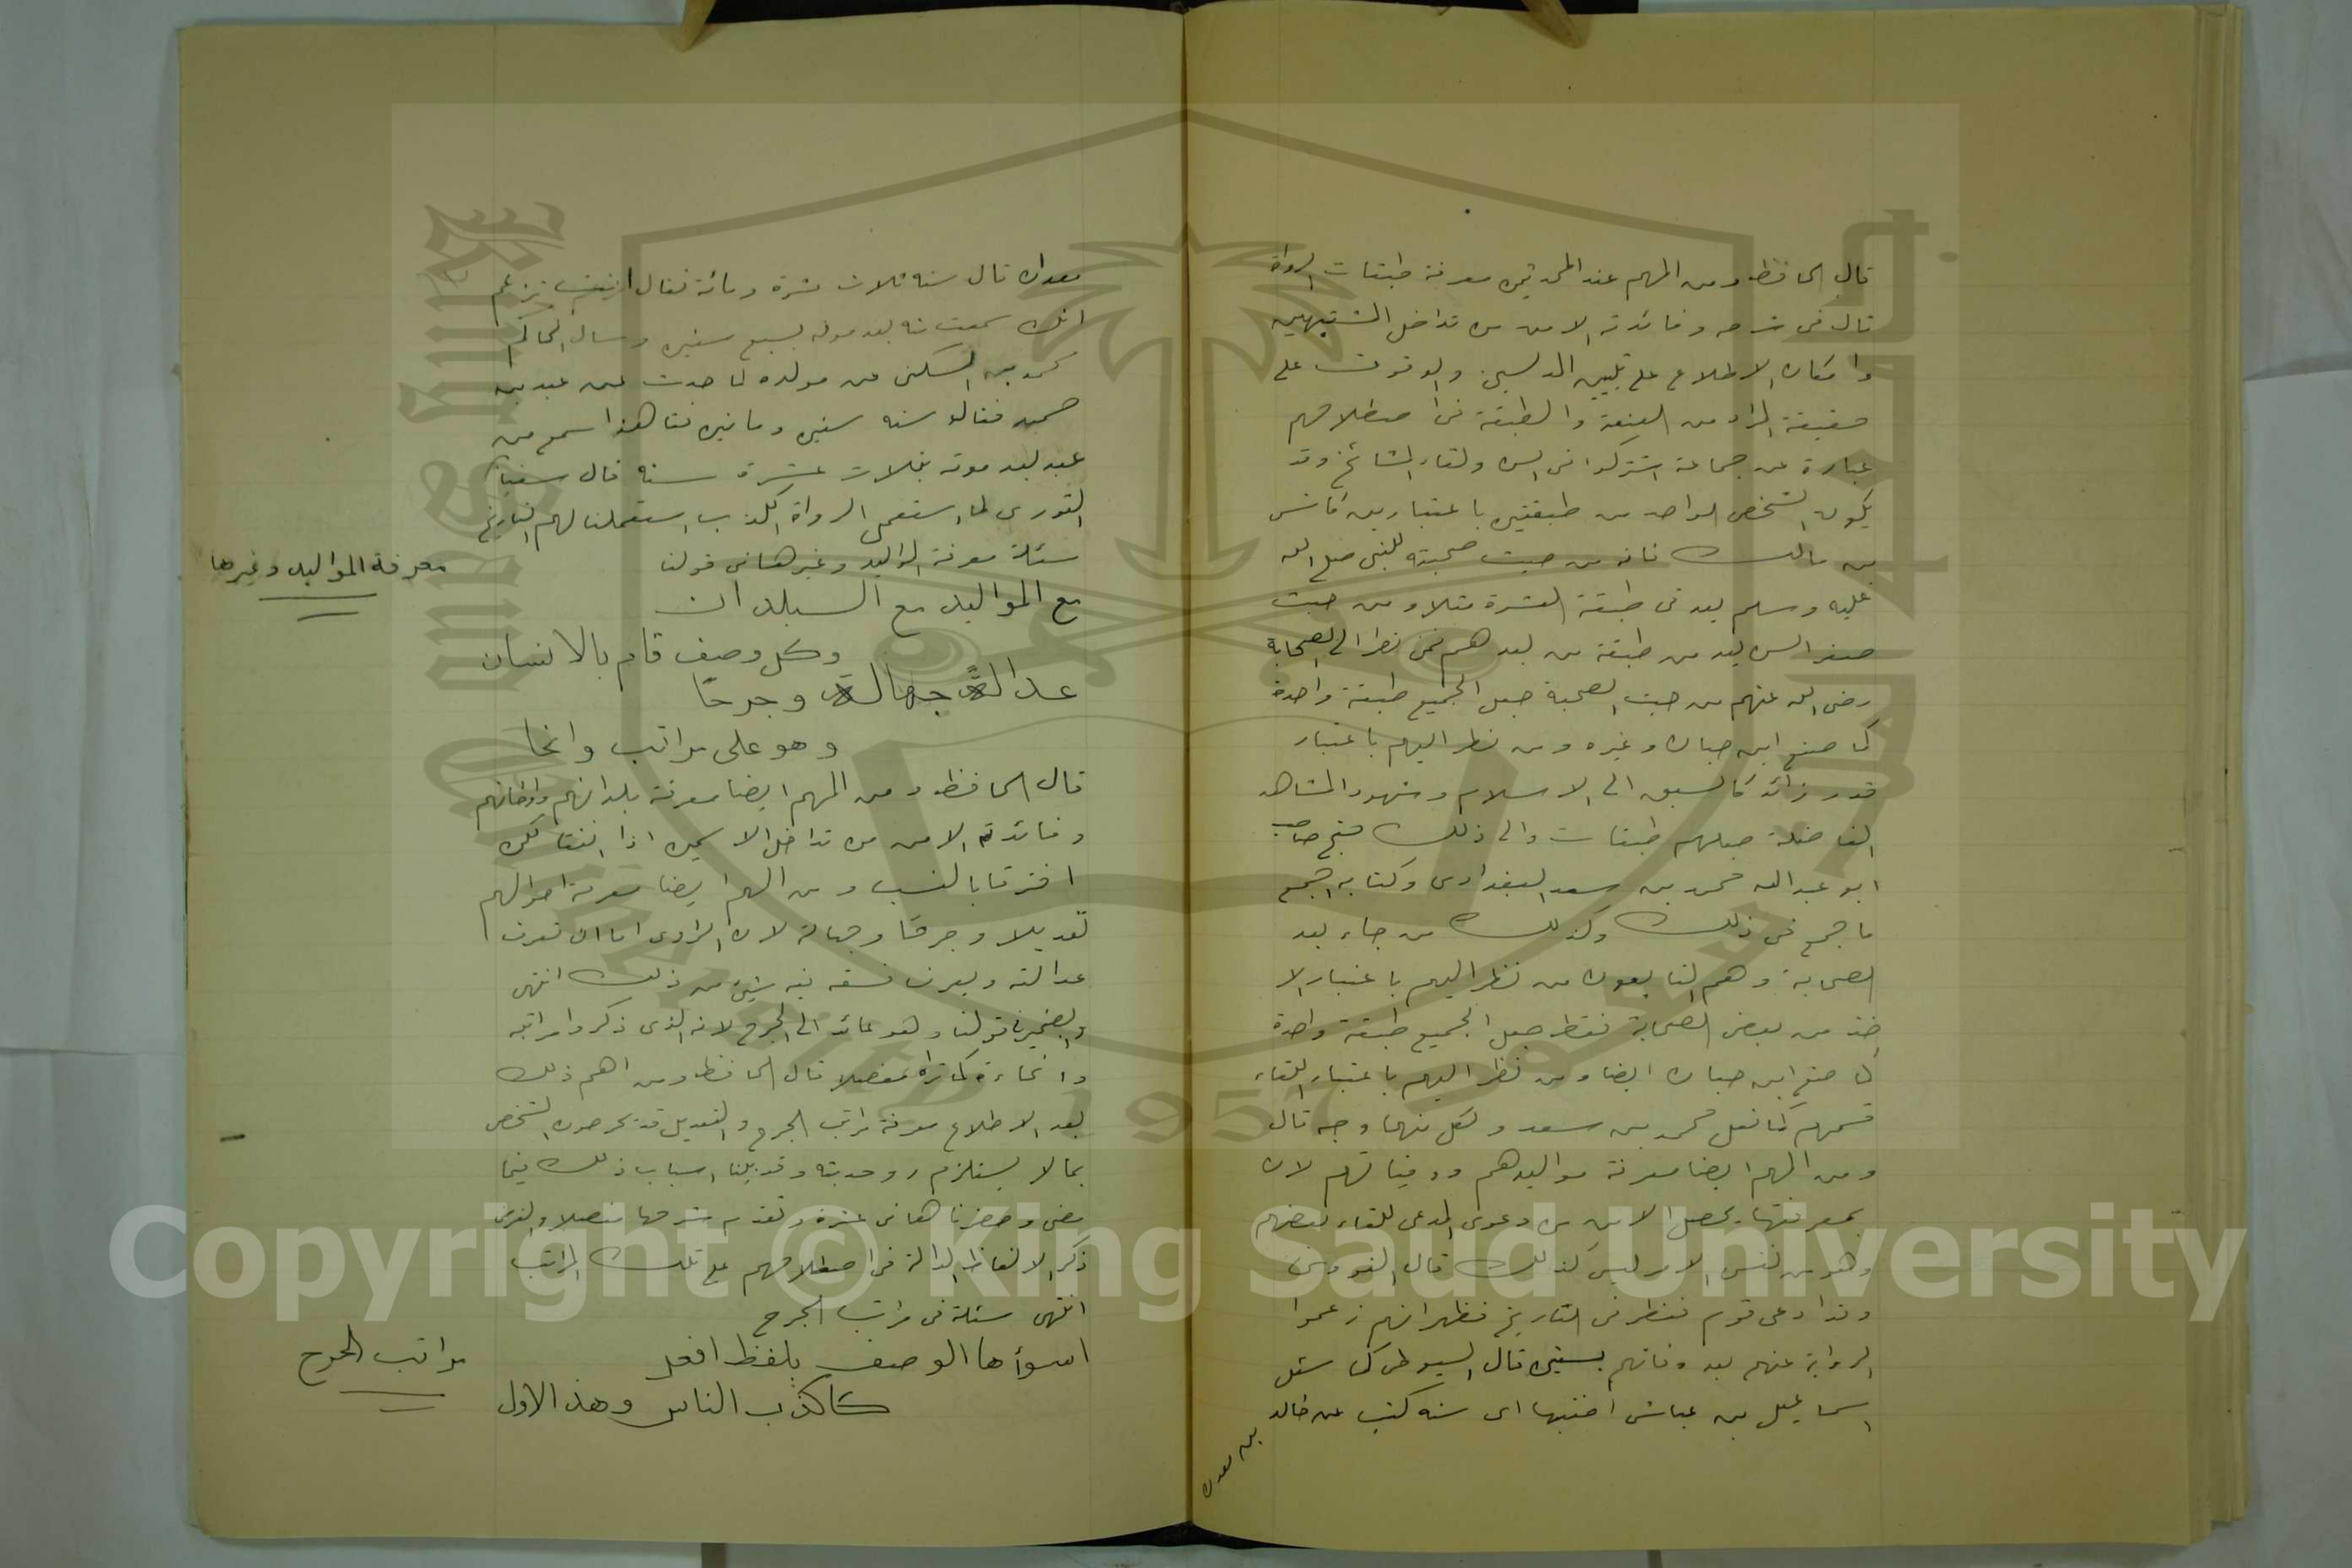 قال الحافظ ومن المهم عند المحدثين معرفة طبقات الرواة
قال في شرحه وفائدته الامن من تداخل المشتبهين
وامكان الاطلاع على تبيين المدلسين والوقوف على
حقيقة المراد من العنعنة والطبقة في اصطلاحهم
عبارة عن جماعة اشتركوا في السن ولقاء المشائخ وقد
يكون الشخص الواحد من طبقتين باعتبارين كأنس
بن مالك فانه من حيث صحبته للنبي صلى الله
عليه وسلم يعد في طبقة العشرة مثلا ومن حيث
صغر السن يعد من طبقة من بعدهم فمن نظر الى الصحابة
رضي الله عنهم من حيث الصحبة جعل الجميع طبقة واحدة
كما صنع ابن حبان وغيره ومن نظر اليهم باعتبار
قدر زائد كالسبق الى الاسلام وشهود المشاهد
الفاضلة جعلهم طبقات والى ذلك جنح صاحب
ابو عبد الله محمد بن سعد البغدادي وكتابه اجمع
ما جمع في ذلك وكذلك من جاء بعد
الصحابة وهم التابعون من نظر اليهم باعتبار الا
خذ من بعض الصحابة فقط جعل الجميع طبقة واحدة
كما صنع ابن حبان ايضا ومن نظر اليهم باعتبار اللقاء
قسمهم كما فعل محمد بن سعد ولكل منهما وجه قال
ومن المهم ايضا معرفة مواليدهم ووفياتهم لان
بمعرفتها يحصل الامن من دعوى المدعي للقاء بعضهم
وهو من نفس الامر ليس كذلك قال النووي
وقد ادعى قوم فنظر في التاريخ فظهر انهم زعموا
الرواية عنهم بعد وفاتهم بسنين قال السيوطي كما سئل
اسماعيل بن عياش اي سنة كتبت عن خالد
بن معدان
معدان قال سنة ثلاث عشرة ومائة فقال انت تزعم
انك سمعت منه بعد موته بسبع سنين وسال الحاكم
محمد بن السكن عن مولده لما حدث عن عبد بن
حميد فقال سنة ستين ومائتين فقال هذا سمع من
عبد بعد موته بثلاث عشرة سنة قال سفيان
الثوري لما استعمل الرواة الكذب استعملنا لهم التاريخ
مسئلة معرفة المواليد وغيرها في قولنا
معرفة المواليد وغيرها
مع المواليد مع البلدان
وكل وصف قام بالانسان
عدالة جهالة وجرحا
وهو على مراتب وانحا
قال الحافظ ومن المهم ايضا معرفة بلدانهم واوطانهم
وفائدته الامن من تداخل الاسمين اذا اتفقا لكن
افترقا بالنسب ومن المهم ايضا معرفة احوالهم
تعديلا وجرحا وجهالة لان الراوي اما ان تعرف
عدالته ويعرف فسقه فيه شيء من ذلك انتهى
والضمير في قولنا وهو عائد الى الجرح لانه الذي ذكروا مراتبه
وانحاءه كما تراه مفصلا قال الحافظ ومن اهم ذلك
بعد الاطلاع معرفة مراتب الجرح والتعديل قد يجرحون الشخص
بما لا يستلزم رد حديثه وقد بينا اسباب ذلك فيما
مضى وحصرناها في عشرة وتقدم شرحها مفصلا والغرض
ذكر الالفاظ الدالة في اصطلاحهم على تلك المراتب
انتهى مسئلة في مراتب الجرح
اسوأها الوصف بلفظ افعل
مراتب الجرح
كأكذب الناس وهذا الاول
Copyright © King Saud University
1957